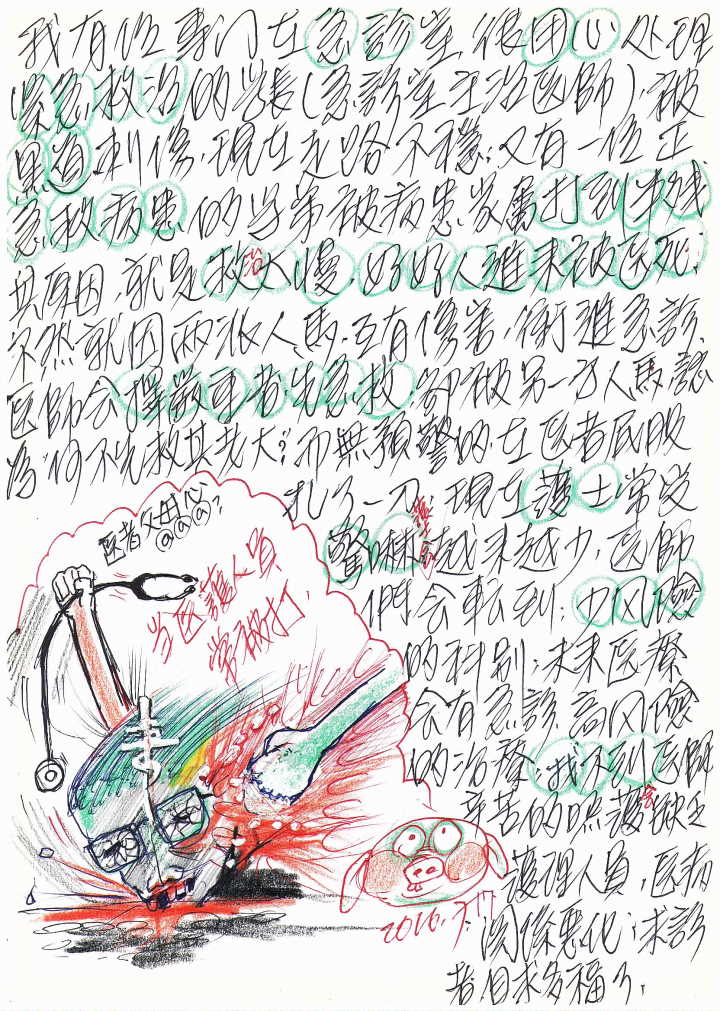 我有位專门在急診室, 很用心处理
緊急救治的学長(急診室主治医師),被
黑道刺傷,現在走路不穩,又有一位正
急救病患的学弟被病患家屬打到半残
其原因,就是救治太慢,好好人進来被医死,
不然就因兩派人馬,互有傷害,衝進急診,
医師会擇嚴重者先急救,卻被另一方人馬認
為何不先救其老大?而無預警的在医者屁股
扎了一刀;現在護士常受
驚嚇越来越少,医師
們会転到:少风險
的科别;未来医療
会有急診高风險
的治療,找不到医師
辛苦的 護会缺乏
護理人員,医病
関係惡化,求診
者自求多福了,
医者父母心
@@@?
当医護人員
常被打,
2016.3.17